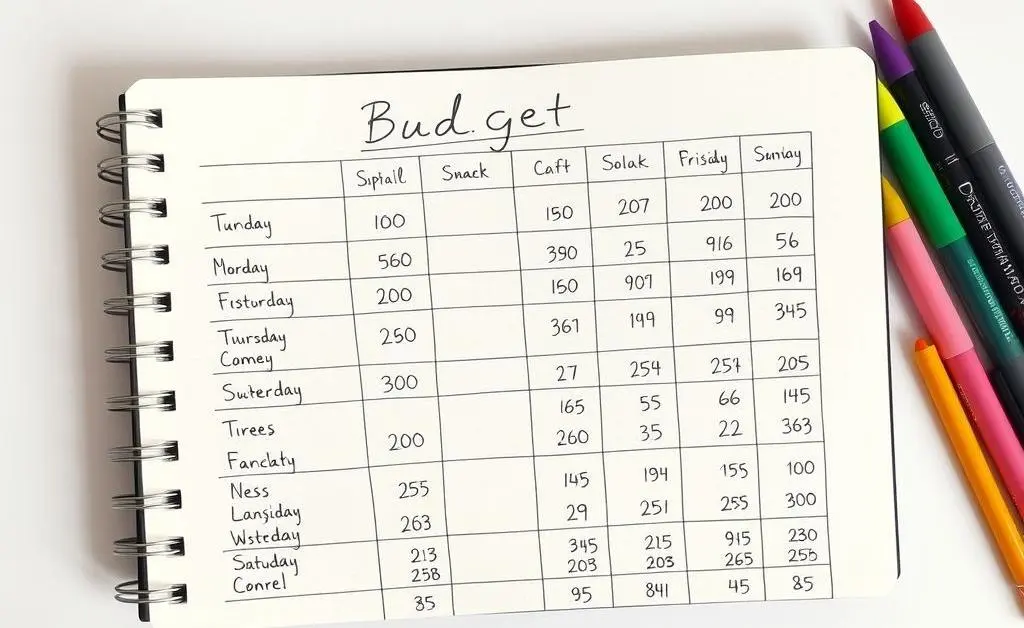 Bud.get
Siptall Snack Caft Solak Frisidy Sunday
Tunday 100 150 207 200 200
Morday 560 390 25 916 56
Fisturday 200 150 907 199 169
Tuursday 250 361 199 99 345
Comey
Suterday 300 27 254 257 205
165 55 66 145
Tirees 200 260 35 22 363
Fanclaty
Ness 255 145 194 155 100
Langiday 29 251 255 300
Wsteday 263
Satuday 213 345 215 915 230
Conrel 258 203 203 265 255
85 95 841 45 85